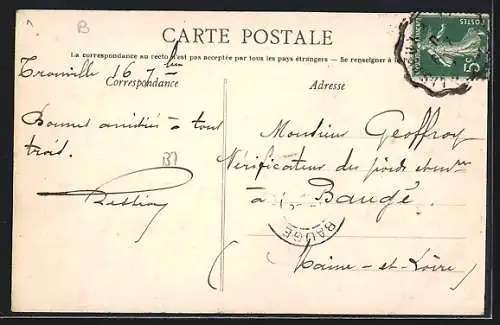 B
CARTE POSTALE
La correspondance au recto n'est pas acceptée par tous les pays étrangers — Se renseigner à la
Correspondance
Adresse
POSTES
5c
Trouville 16 7bre
Bonnes amitiés à tous
trois.
B7
Monsieur Geoffroy
Vérificateur des poids et mres
à Baugé
BAUGE
(Maine-et-Loire)